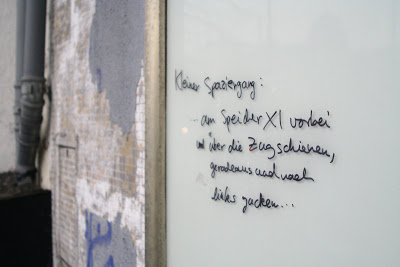 Kleiner Spaziergang:
...am Speicher XI vorbei
und über die Zugschienen,
geradeaus und nach
links gucken...